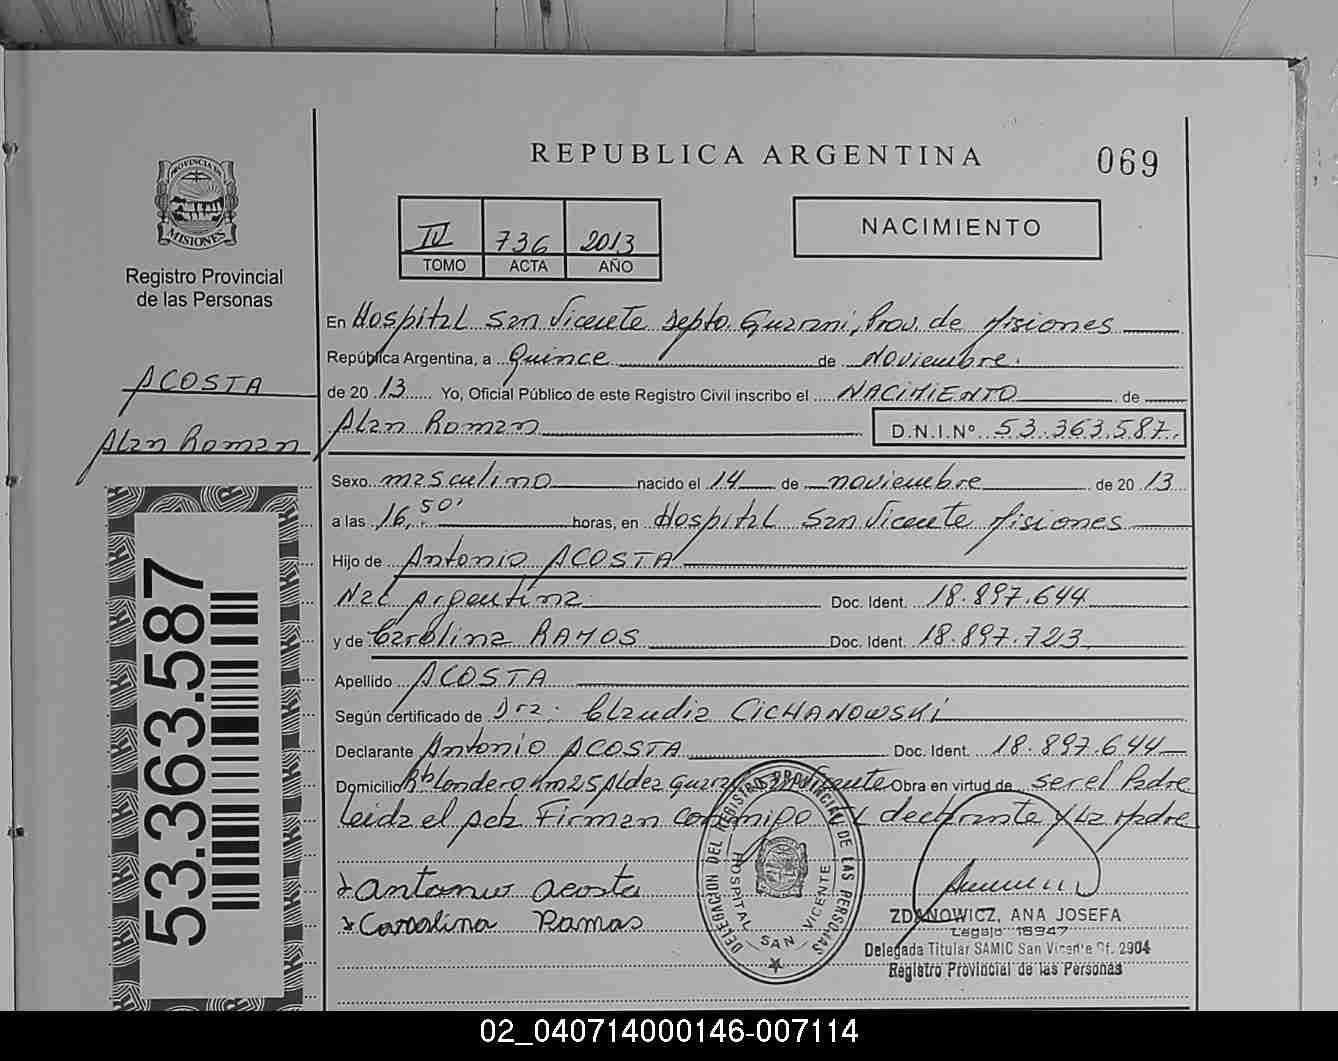 REPUBLICA ARGENTINA
069
PROVINCIA DE MISIONES
Registro Provincial
de las Personas
IV 736 2013
TOMO ACTA AÑO
NACIMIENTO
ACOSTA
Alan Roman
53.363.587
En Hospital San Vicente Depto Guarani, Prov. de Misiones
República Argentina, a Quince de Noviembre.
de 2013 Yo, Oficial Público de este Registro Civil inscribo el NACIMIENTO de
Alan Roman D.N.I.Nº 53.363.587.
Sexo masculino nacido el 14 de noviembre de 2013
a las 16,50' horas, en Hospital San Vicente Misiones
Hijo de Antonio ACOSTA
Nac Argentina Doc. Ident. 18.897.644
y de Carolina RAMOS Doc. Ident. 18.897.723
Apellido ACOSTA
Según certificado de Dra. Claudia CICHANOWSKI
Declarante Antonio ACOSTA Doc. Ident. 18.897.644
Domicilio Londero Km 25 Aldea Vicente Obra en virtud de ser el Padre
Leida el Acta Firman conmigo el declarante y La Madre
Antonio Acosta
Carolina Ramas
DELEGACION DEL REGISTRO PROVINCIAL DE LAS PERSONAS
HOSPITAL SAN VICENTE
ZDANOWICZ, ANA JOSEFA
Legajo 16947
Delegada Titular SAMIC San Vicente Of. 2904
Registro Provincial de las Personas
02_040714000146-007114